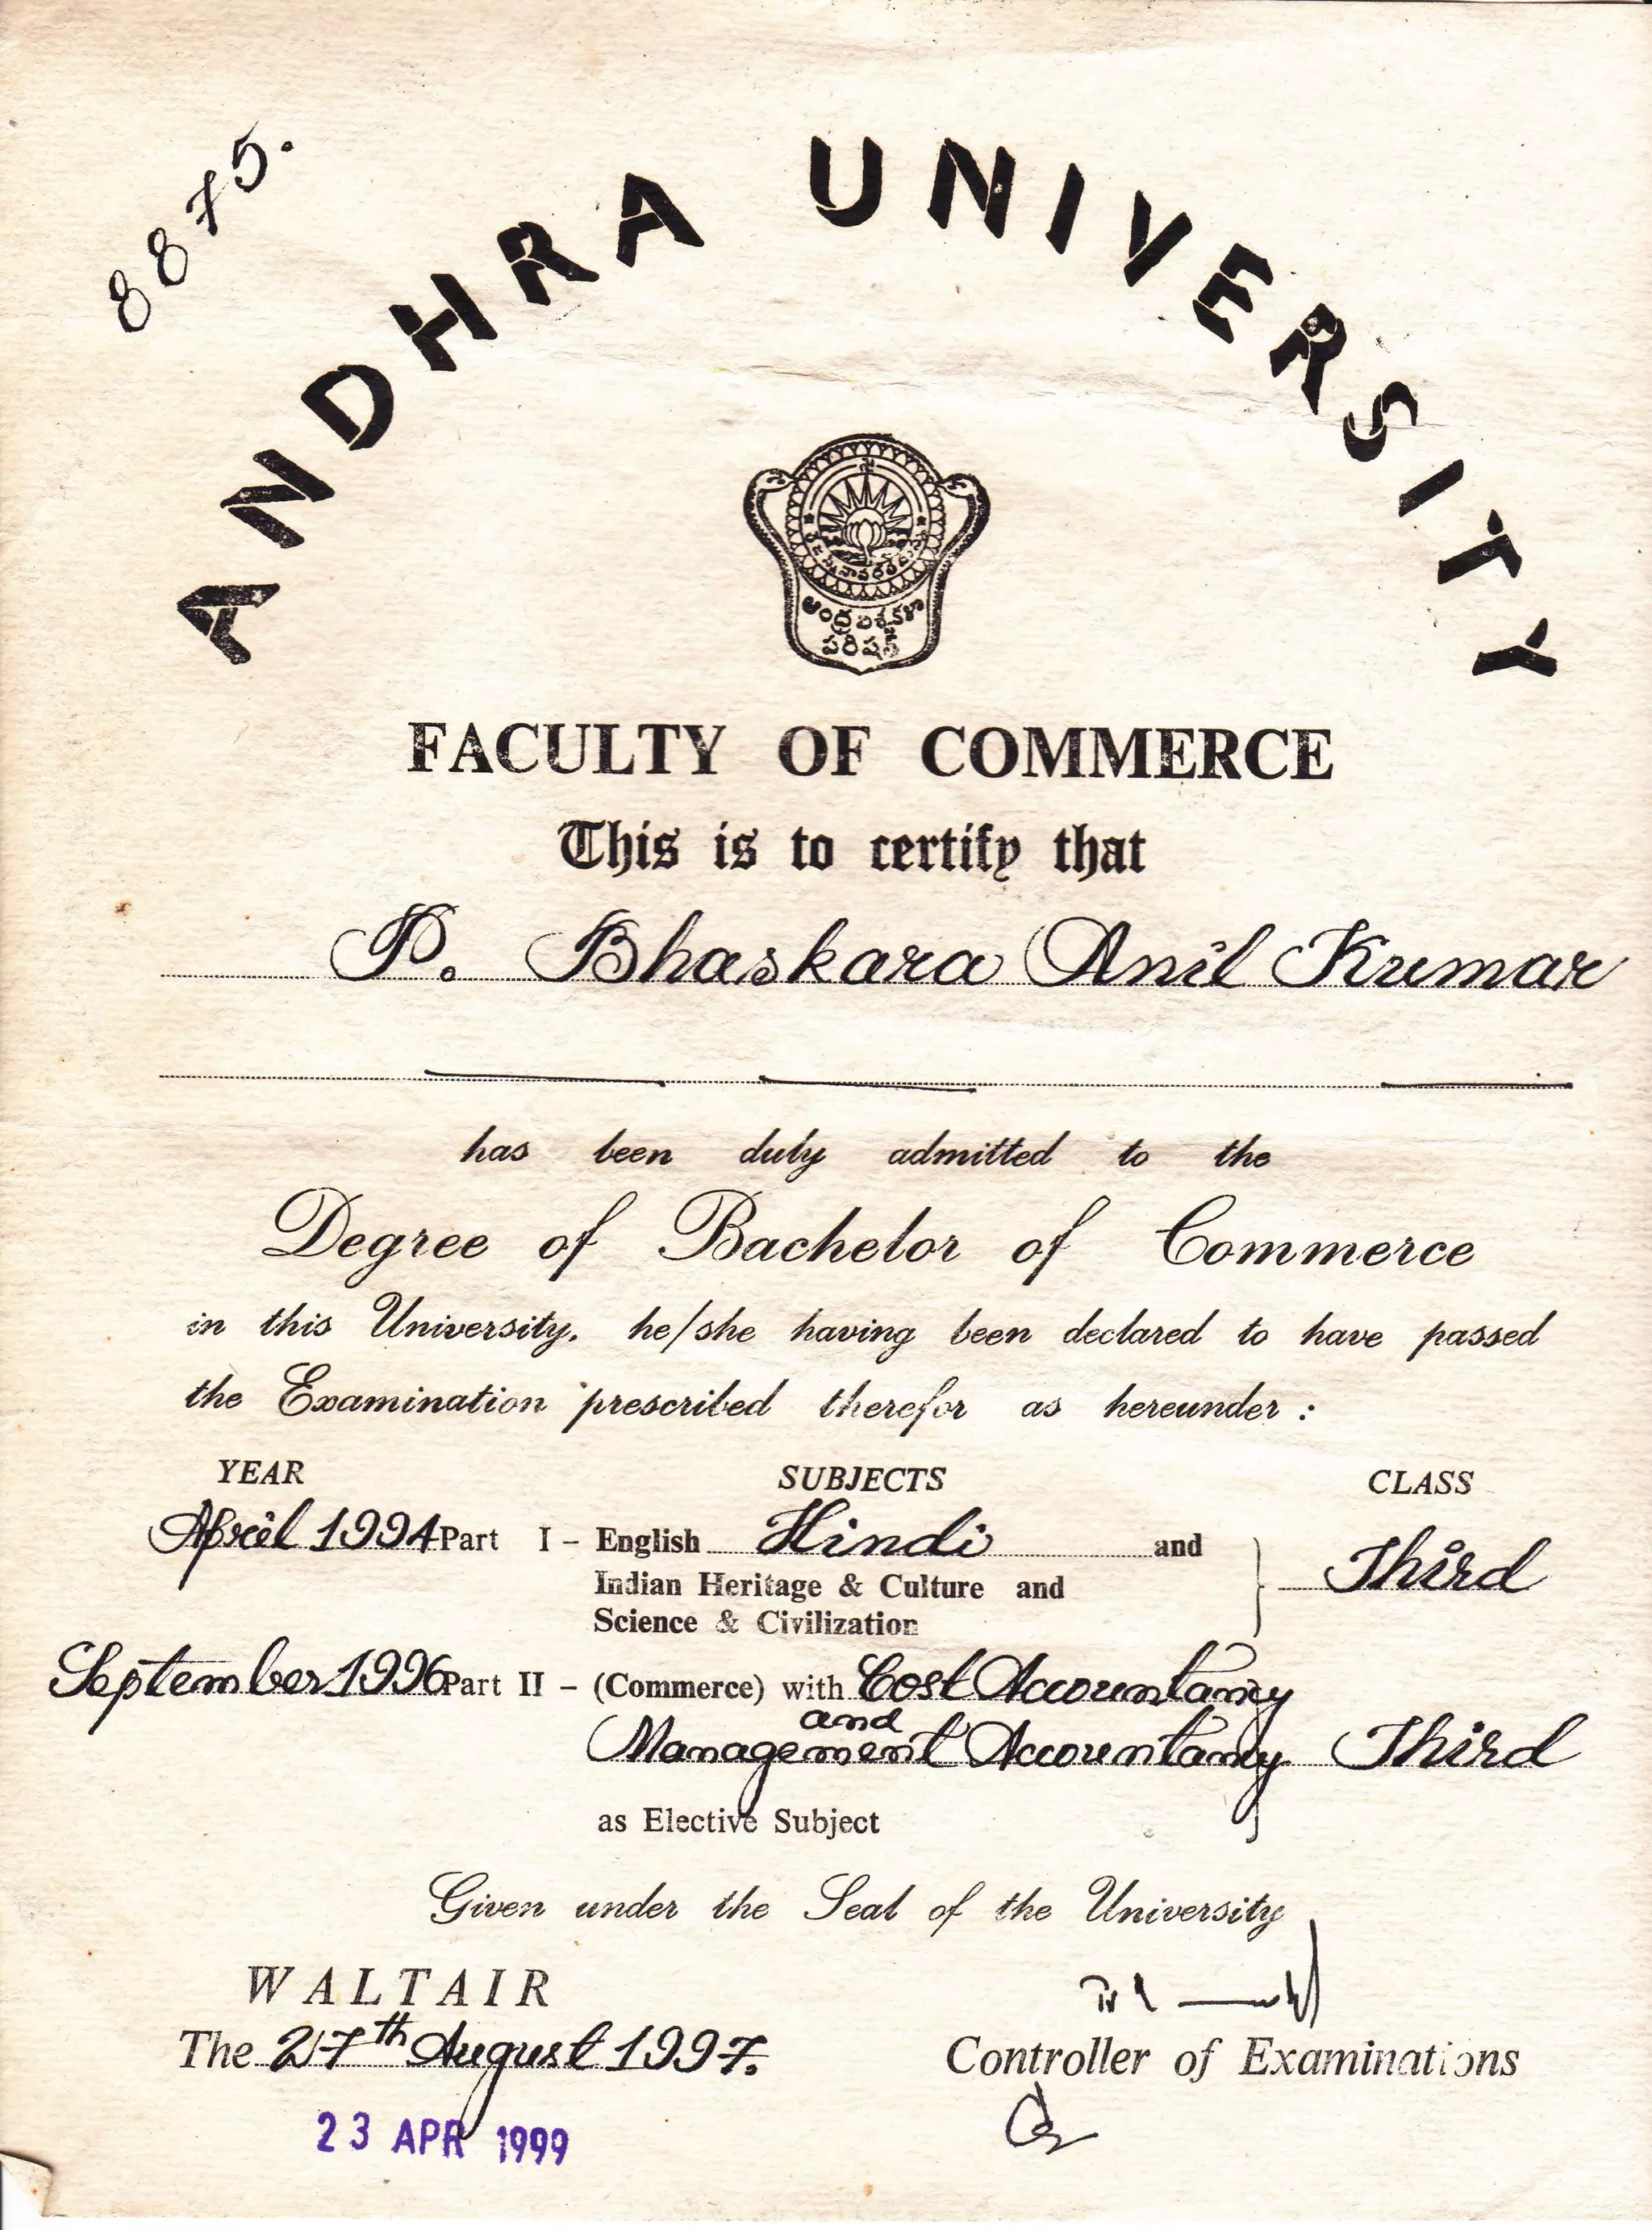 8875.
ANDHRA UNIVERSITY
ఆంధ్ర విశ్వకళా
పరిషత్
FACULTY OF COMMERCE
This is to certify that
P. Bhaskara Anil Kumar
has been duly admitted to the
Degree of Bachelor of Commerce
in this University, he/she having been declared to have passed
the Examination prescribed therefor as hereunder :
YEAR SUBJECTS CLASS
April 1994 Part I - English Hindi and
Indian Heritage & Culture and Third
Science & Civilization
September 1996 Part II - (Commerce) with Cost Accountancy
and
Management Accountancy Third
as Elective Subject
Given under the Seal of the University
WALTAIR
The 27th August 1997.
Controller of Examinations
23 APR 1999